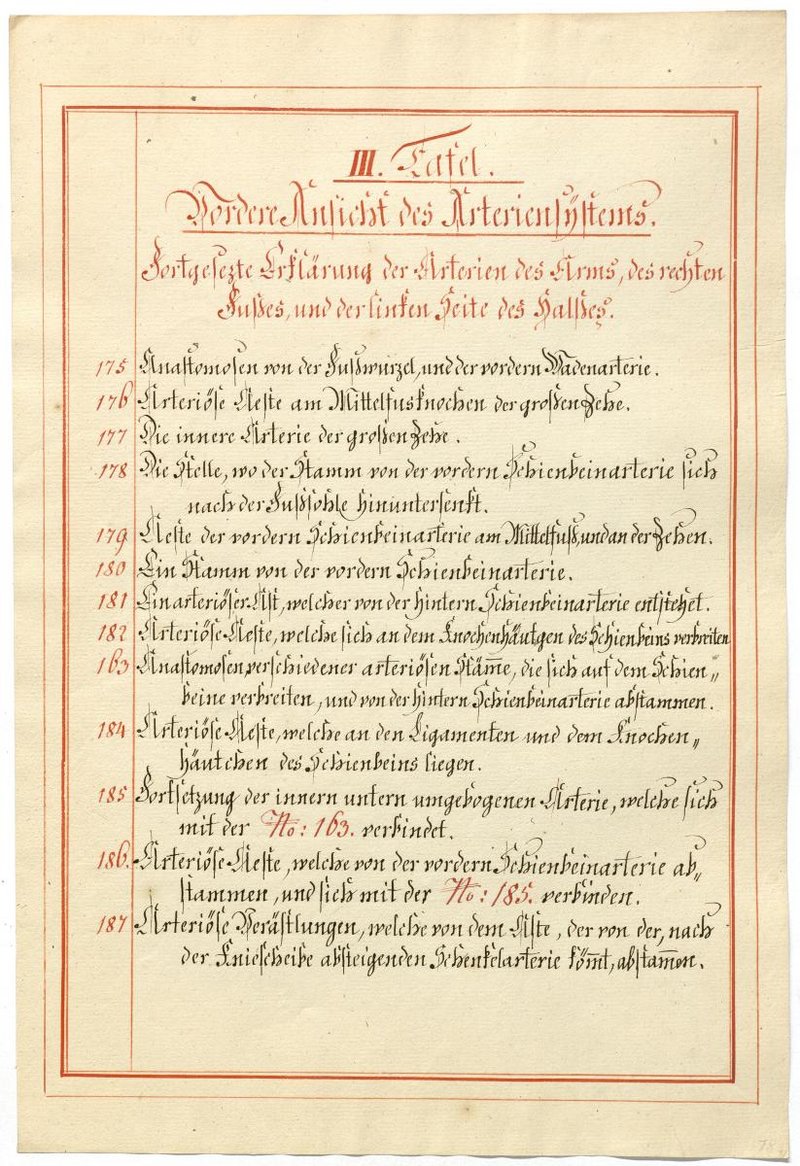 III. Tafel.
Vordere Ansicht des Arteriensÿstems.
Fortgesezte Erklärung der Arterien des Arms, des rechten
Fußes, und der linken Seite des Halßes.
175 Anastomosen von der Fußwurzel, und der vordern Wadenarterie.
176 Arteriöse Aeste am Mittelfusknochen der großen Zehe.
177 Die innere Arterie der großen Zehe.
178 Die Stelle, wo der Stamm von der vordern Schienbeinarterie sich
nach der Fußsohle hinuntersenkt.
179 Aeste der vordern Schienbeinarterie am Mittelfuß, und an der Zehen.
180 Ein Stamm von der vordern Schienbeinarterie.
181 Ein arteriöser Ast, welcher von der hintern Schienbeinarterie entstehet.
182 Arteriöse Aeste, welche sich an dem Knochenhäutgen des Schienbeins verbreiten
163 Anastomosen verschiedener arteriösen Stäm̅e, die sich auf dem Schien„
beine verbreiten, und von der hintern Schienbeinarterie abstammen.
184 Arteriöse Aeste, welche an den Ligamenten und dem Knochen„
häutchen des Schienbeins liegen.
185 Fortsetzung der innern untern umgebogenen Arterie, welche sich
mit der No: 163. verbindet.
186. Arteriöse Aeste, welche von der vordern Schienbeinarterie ab„
stammen, und sich mit der No: 185. verbinden.
187 Arteriöse Verästlungen, welche von dem Aste, der von der, nach
der Kniescheibe absteigenden Schenkelarterie köm̅t, abstam̅en.